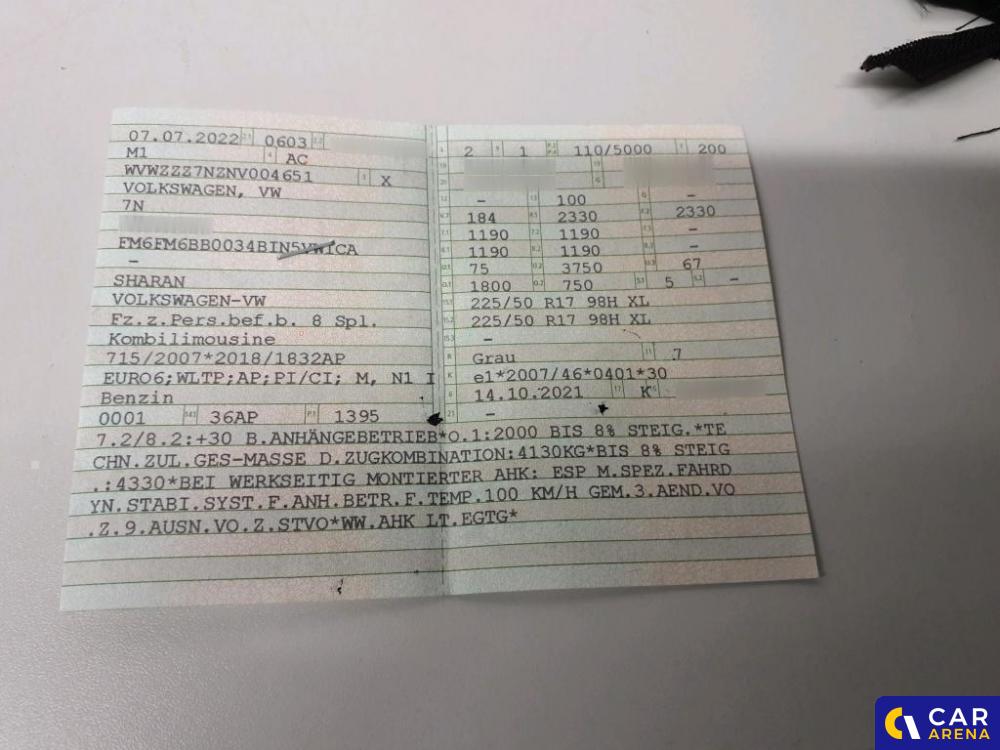 07.07.2022 0603
M1 AC
WVWZZZ7NZNV004651 X
VOLKSWAGEN, VW
7N
FM6FM6BB0034BIN5VWICA
–
SHARAN
VOLKSWAGEN-VW
Fz.z.Pers.bef.b. 8 Spl.
Kombilimousine
715/2007*2018/1832AP
EURO6;WLTP;AP;PI/CI; M, N1 I
Benzin
0001 36AP 1395
2 1 110/5000 200
– 100 –
184 2330 2330
1190 1190 –
1190 1190 –
75 3750 67
1800 750 5 –
225/50 R17 98H XL
225/50 R17 98H XL
–
Grau 7
e1*2007/46*0401*30
14.10.2021 K
–
7.2/8.2:+30 B.ANHÄNGEBETRIEB*O.1:2000 BIS 8% STEIG.*TE
CHN.ZUL.GES-MASSE D.ZUGKOMBINATION:4130KG*BIS 8% STEIG
.:4330*BEI WERKSEITIG MONTIERTER AHK: ESP M.SPEZ.FAHRD
YN.STABI.SYST.F.ANH.BETR.F.TEMP.100 KM/H GEM.3.AEND.VO
.Z.9.AUSN.VO.Z.STVO*WW.AHK LT.EGTG*
CAR
ARENA